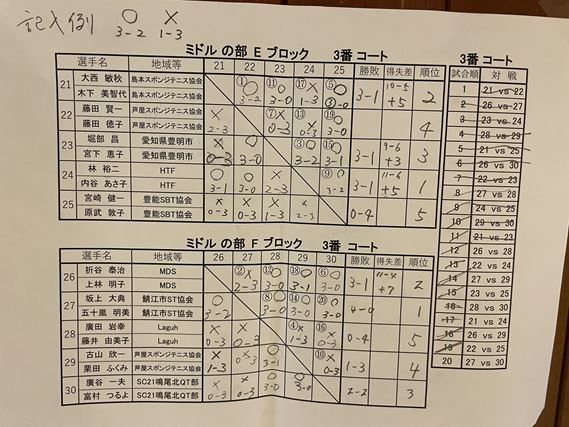 記入例 ○ ×
3-2 1-3
ミドル の部 E ブロック 3番 コート
選手名 地域等 21 22 23 24 25 勝敗 得失差 順位
21 大西 敏秋 木下 美智代 島本スポンジテニス協会 ① ○ 3-2 ⑪ ○ 3-0 ⑰ × 1-3 ⑤ ○ 3-0 3-1 10-5 +5 2
22 藤田 賢一 藤田 徳子 芦屋スポンジテニス協会 × 2-3 ⑦ × 0-3 ⑬ × ⑲ ○ 3-0 4
23 堀部 昌 宮下 恵子 愛知県豊明市 × 0-3 ○ 3-0 ③ ○ 3-2 ⑮ ○ 3-1 3-1 9-6 +3 3
24 林 裕二 内谷 あさ子 HTF ○ 3-1 ○ 3-0 × 2-3 ⑨ ○ 3-2 3-1 11-6 +5 1
25 宮崎 健一 原武 敦子 豊能SBT協会 × 0-3 × 0-3 × 1-3 × 2-3 0-4 5
ミドル の部 F ブロック 3番 コート
選手名 地域等 26 27 28 29 30 勝敗 得失差 順位
26 折谷 泰治 上林 明子 MDS ② × 2-3 ⑫ ○ 3-0 ⑱ ○ 3-1 ⑥ ○ 3-0 3-1 11-4 +7 2
27 坂上 大典 五十嵐 明美 鯖江市ST協会 ○ 3-2 ⑧ ○ 3-0 ⑭ ○ 3-0 ⑳ ○ 3-0 4-0 1
28 廣田 岩幸 藤井 由美子 Laguh × 0-3 × 0-3 ④ × 1-3 ⑯ × 0-3 0-4 5
29 古山 欣一 栗田 ふくみ 芦屋スポンジテニス協会 × 1-3 × 0-3 ○ 3-1 ⑩ × 0-3 1-3 4
30 廣谷 一夫 富村 つるよ SC21鳴尾北QT部 × 0-3 × 0-3 ○ 3-0 ○ 3-0 2-2 3
3番 コート
試合順 対 戦
1 21 vs 22
2 26 vs 27
3 23 vs 24
4 28 vs 29
5 21 vs 25
6 26 vs 30
7 22 vs 23
8 27 vs 28
9 24 vs 25
10 29 vs 30
11 21 vs 23
12 26 vs 28
13 22 vs 24
14 27 vs 29
15 23 vs 25
16 28 vs 30
17 21 vs 24
18 26 vs 29
19 22 vs 25
20 27 vs 30